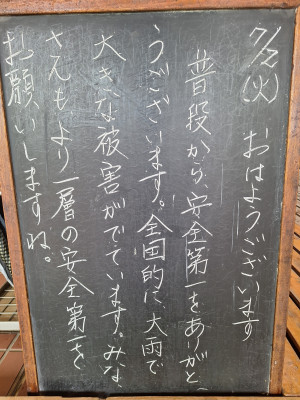 7/2(火) おはようございます
普段から、安全第一をありがと
うございます。全国的に、大雨で
大きな被害がでています。みな
さんも、より一層の安全第一を
お願いしますね。